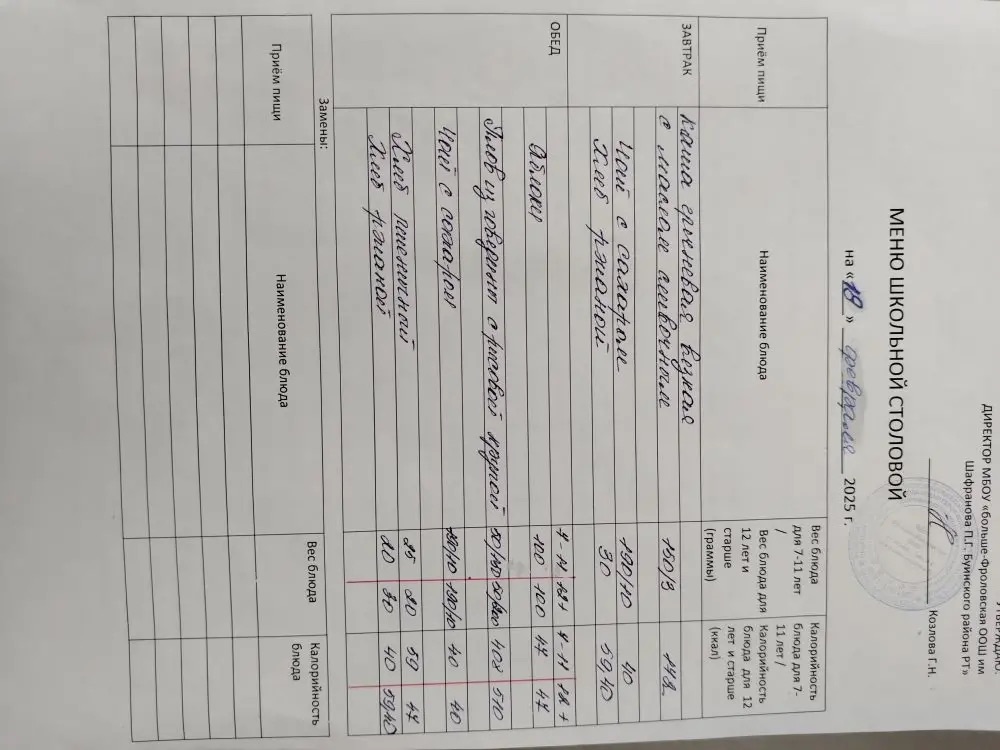 УТВЕРЖДАЮ:
ДИРЕКТОР МБОУ «больше-Фроловская ООШ им
Шафранова П.Г. Буинского района РТ»
Козлова Г.Н.
МЕНЮ ШКОЛЬНОЙ СТОЛОВОЙ
на « 18 » февраля 2025 г.
Приём пищи Наименование блюда Вес блюда для 7-11 лет / Вес блюда для 12 лет и старше (граммы) Калорийность блюда для 7-11 лет / Калорийность блюда для 12 лет и старше (ккал)
ЗАВТРАК Каша гречневая вязкая
с маслом сливочным 150/3 148
Чай с сахаром 190/10 40
Хлеб ржаной 30 59,40
ОБЕД 7-11 12+ 7-11 12+
Яблоки 100 100 47 47
Плов из говядины с рисовой крупой 50/150 408 510
Чай с сахаром 190/10 190/10 40 40
Хлеб пшеничный 25 20 59 47
Хлеб ржаной 20 30 40 59,40
Замены:
Приём пищи Наименование блюда Вес блюда Калорийность блюда